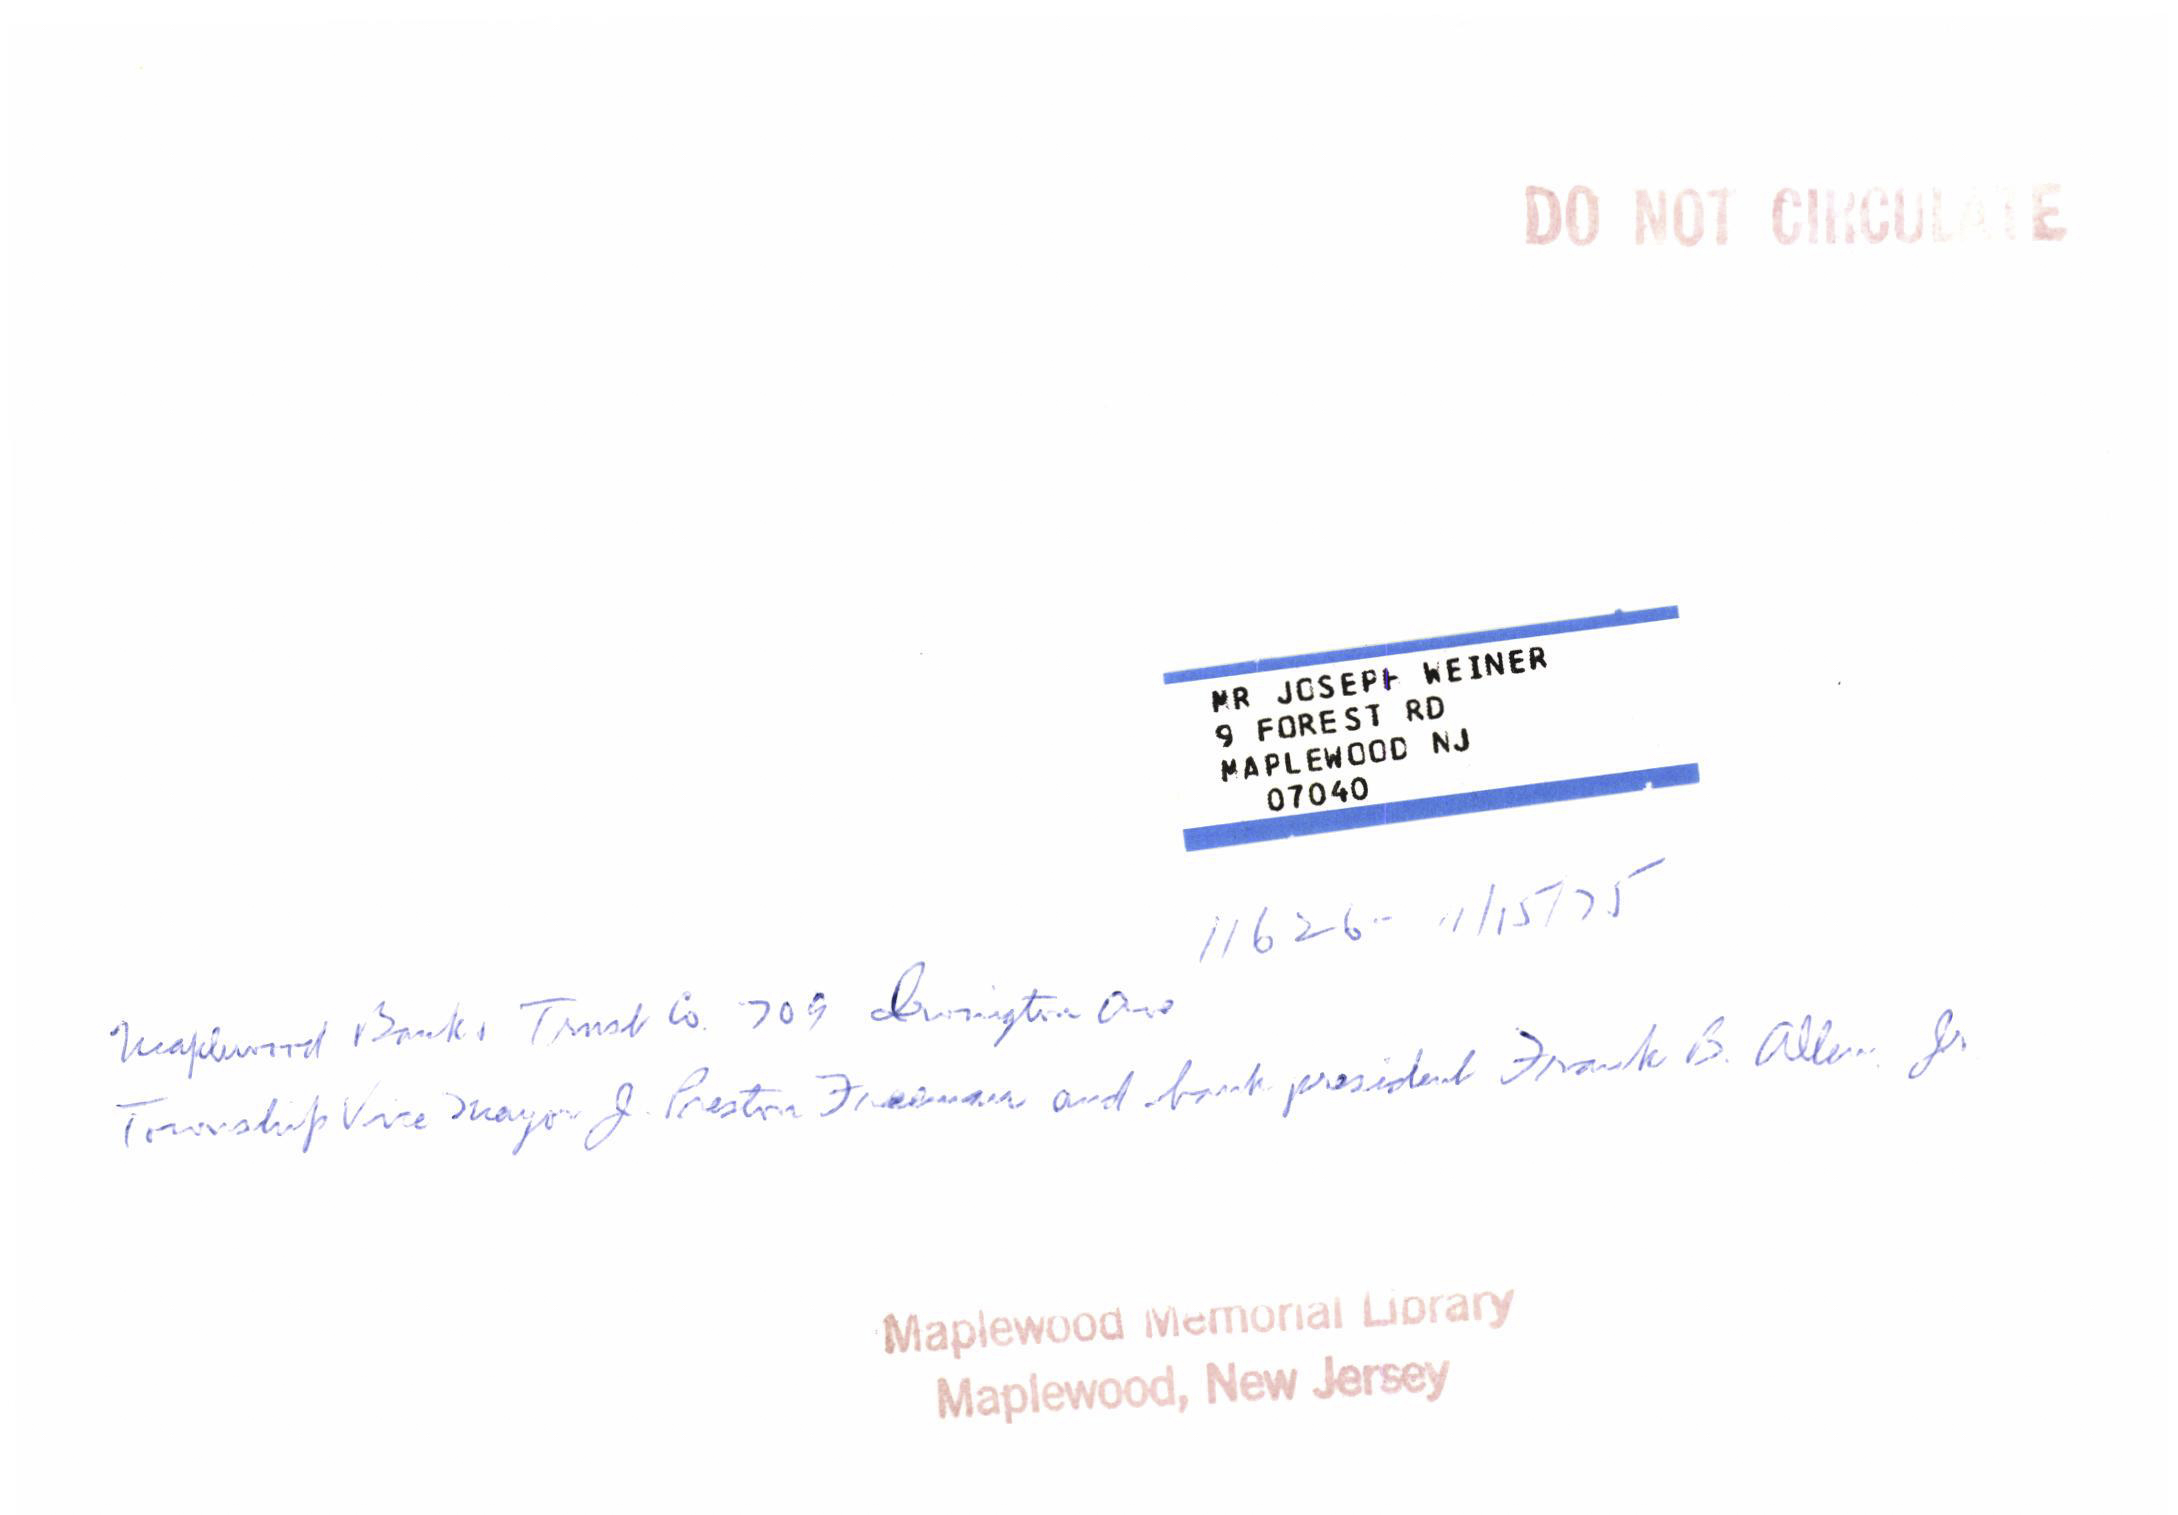 DO NOT CIRCULATE
MR JOSEPH WEINER
9 FOREST RD
MAPLEWOOD NJ
07040
11626- 11/15/75
Maplewood Bank & Trust Co. 709 Irvington Ave
Township Vice Mayor J. Preston Freeman and bank president Frank B. Allen, Jr.
Maplewood Memorial Library
Maplewood, New Jersey